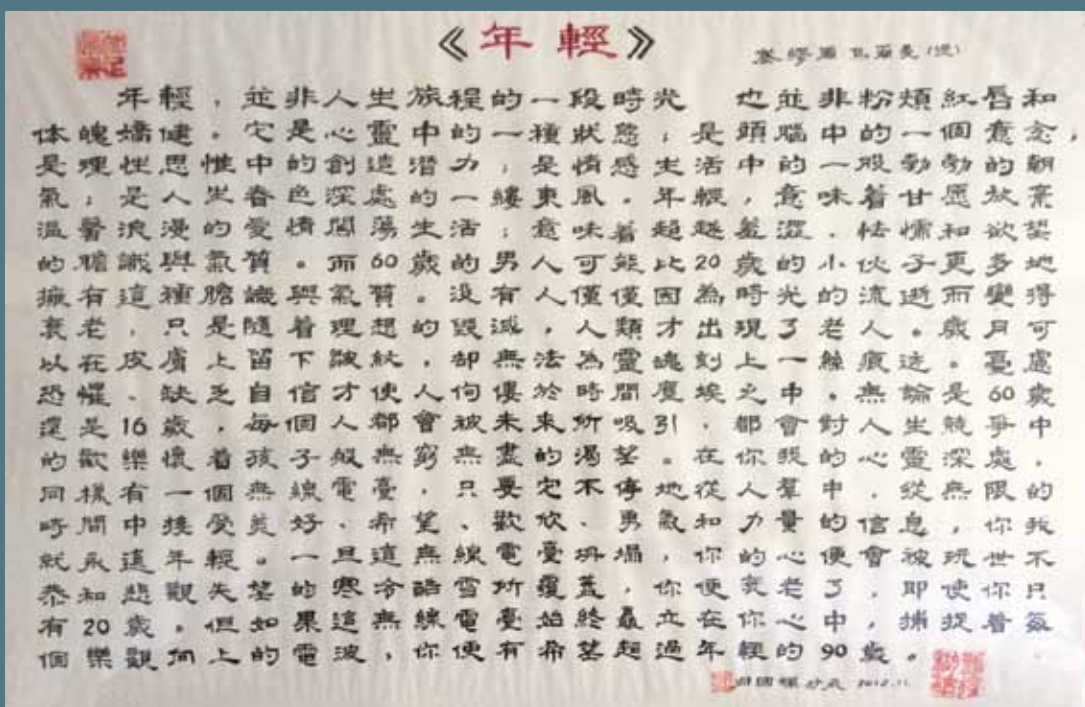 《年輕》
塞缪爾 厄爾曼(德)
年輕，並非人生旅程的一段時光 也並非粉頰紅唇和
体魄嬌健。它是心靈中的一種狀態；是頭腦中的一個意念，
是理性思惟中的創造潜力；是情感生活中的一股勃勃的朝
氣；是人生春色深處的一縷東風。年輕，意味着甘愿放棄
温馨浪漫的愛情闖蕩生活；意味着超越羞澀、怯懦和欲望
的膽識與氣質。而60歲的男人可能比20歲的小伙子更多地
擁有這種膽識與氣質。没有人僅僅因為時光的流逝而變得
衰老，只是隨着理想的毁滅，人類才出現了老人。歲月可
以在皮膚上留下皺紋，却無法為靈魂刻上一絲痕迹。憂慮
恐懼、缺乏自信才使人佝僂於時間塵埃之中。無論是60歲
還是16歲，每個人都會被未來所吸引，都會對人生競爭中
的歡樂懷着孩子般無窮無盡的渴望。在你我的心靈深處，
同樣有一個無線電臺，只要它不停地從人羣中，從無限的
時間中接受美好、希望、歡欣、勇氣和力量的信息，你我
就永遠年輕。一旦這無線電臺坍塌，你的心便會被玩世不
恭和悲觀失望的寒冷酷雪所覆蓋，你便衰老了，即使你只
有20歲。但如果這無線電臺始終矗立在你心中，捕捉着每
個樂觀向上的電波，你便有希望超過年輕的90歲。
2012.11.